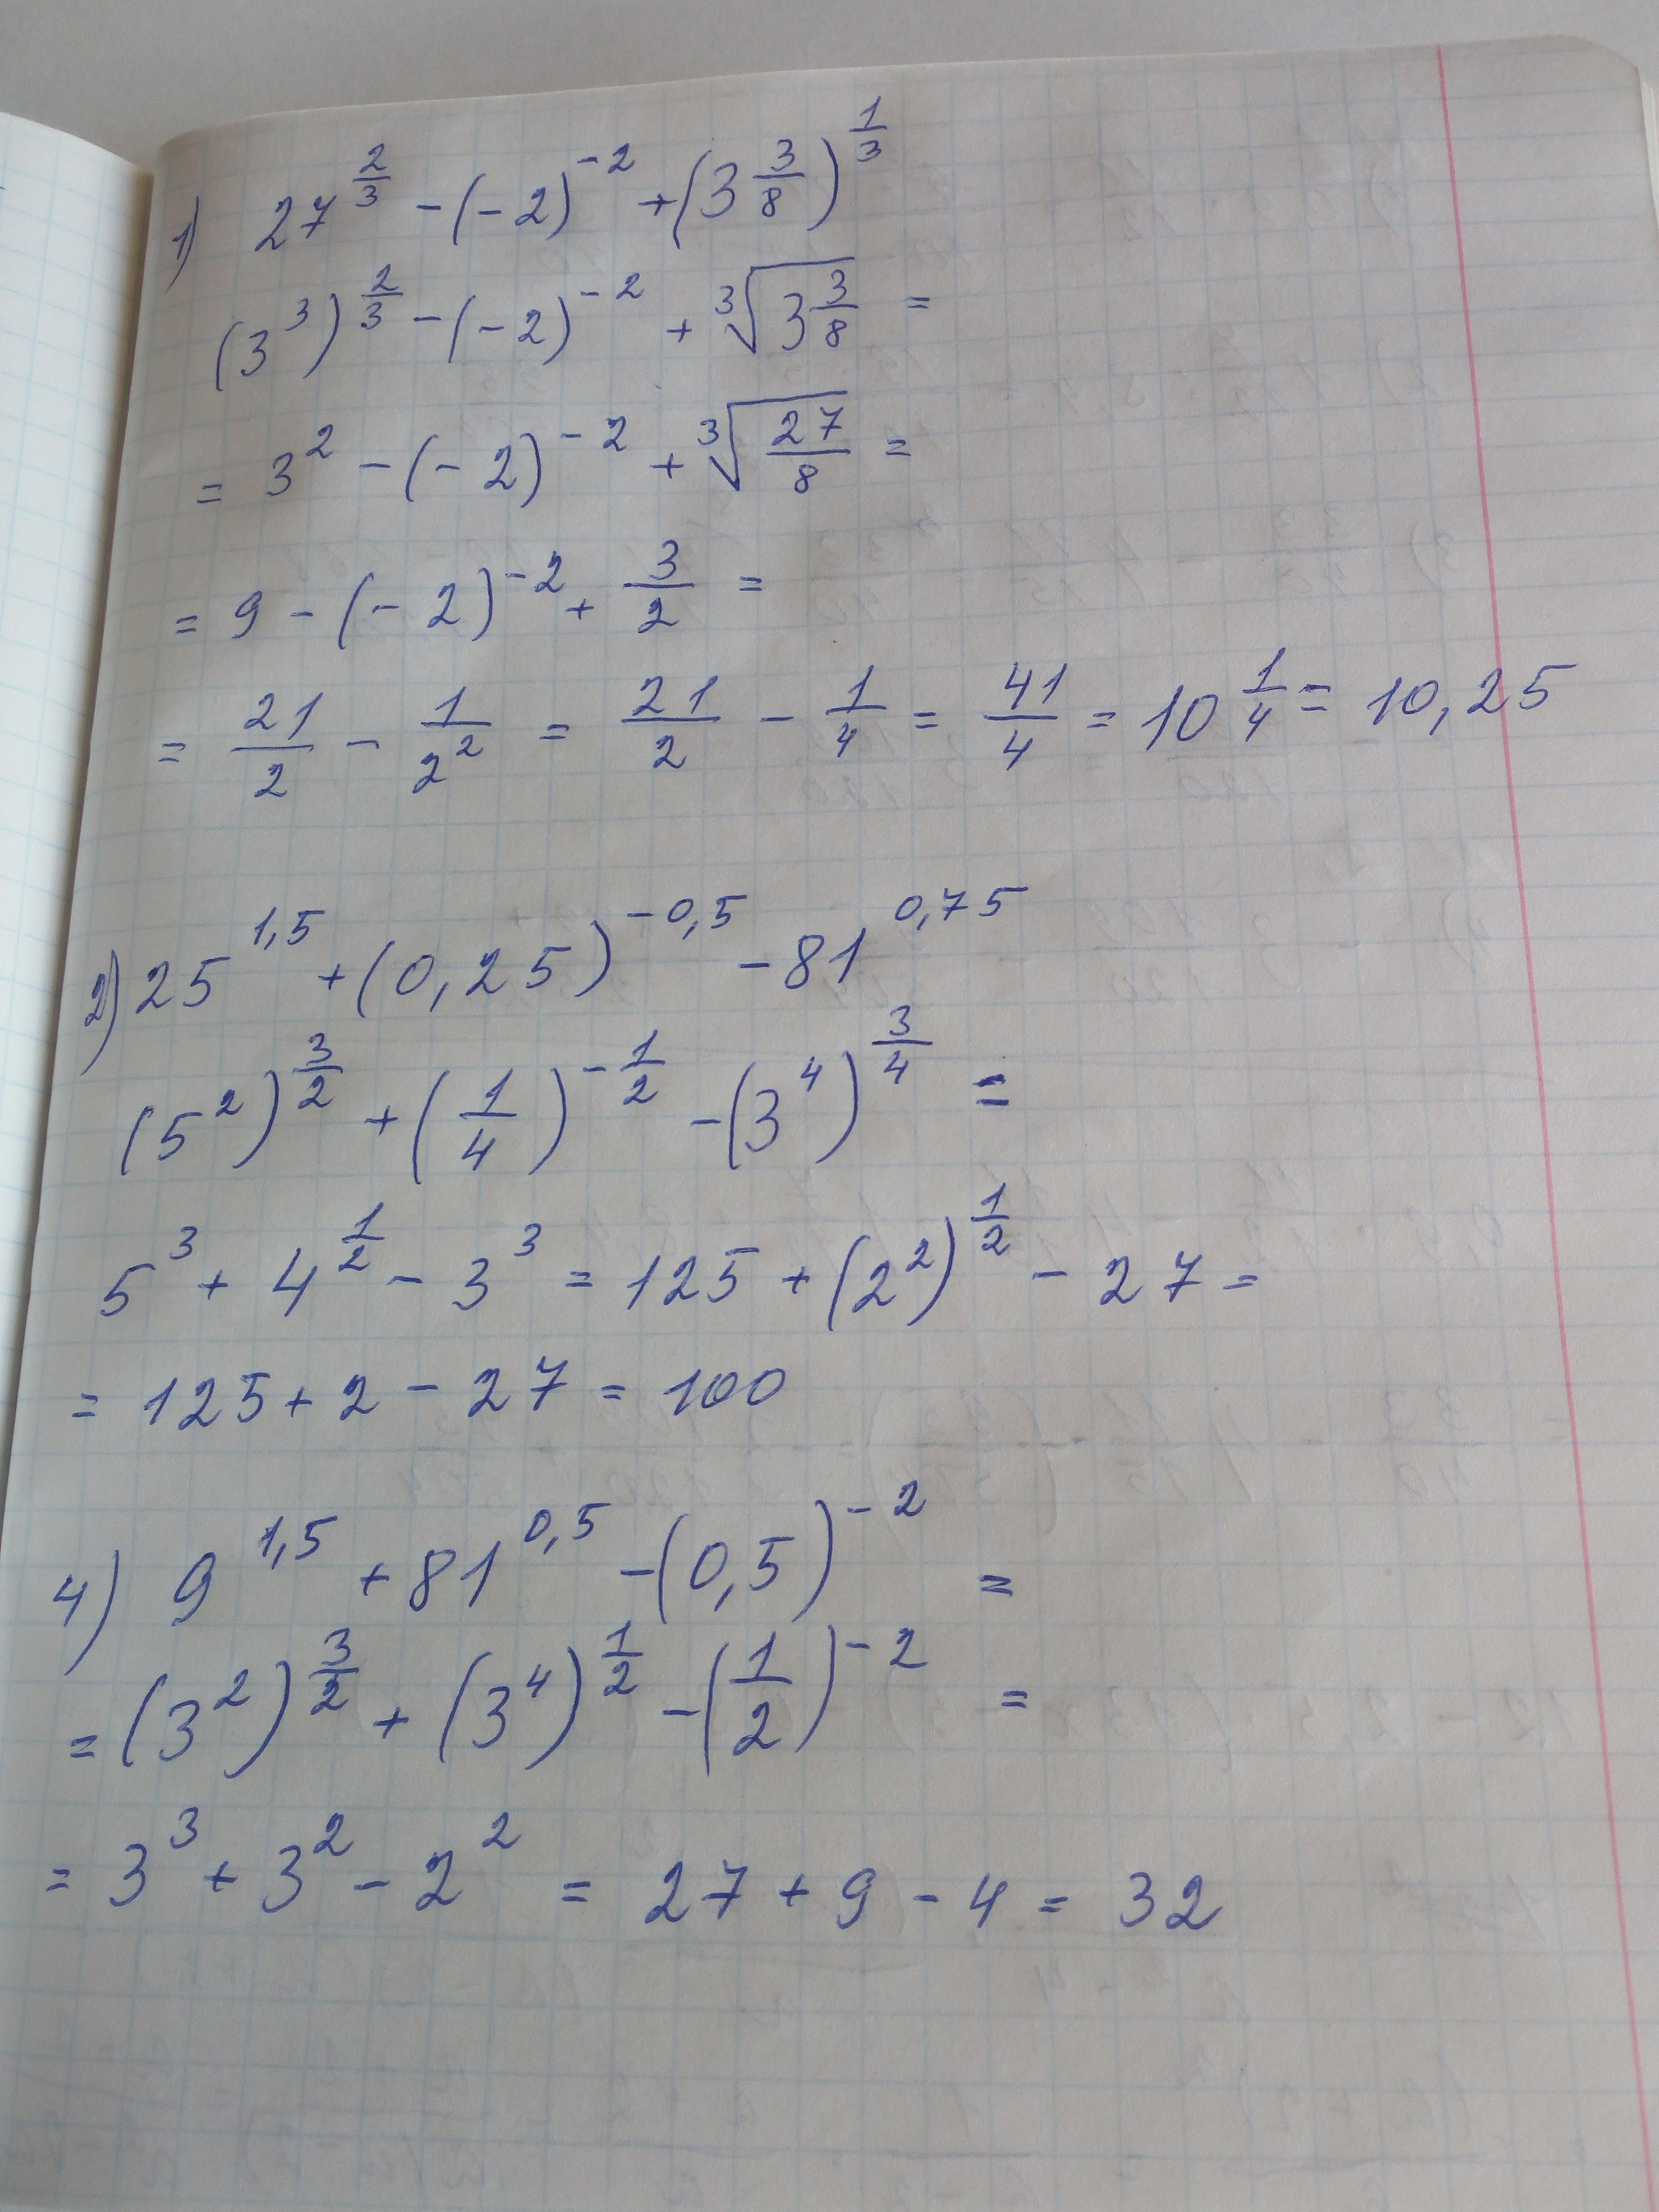 1) 27^(2/3) - (-2)^(-2) + (3 3/8)^(1/3)
(3^3)^(2/3) - (-2)^(-2) + ∛(3 3/8) =
= 3^2 - (-2)^(-2) + ∛(27/8) =
= 9 - (-2)^(-2) + 3/2 =
= 21/2 - 1/2^2 = 21/2 - 1/4 = 41/4 = 10 1/4 = 10,25
2) 25^(1,5) + (0,25)^(-0,5) - 81^(0,75)
(5^2)^(3/2) + (1/4)^(-1/2) - (3^4)^(3/4) =
5^3 + 4^(1/2) - 3^3 = 125 + (2^2)^(1/2) - 27 =
= 125 + 2 - 27 = 100
4) 9^(1,5) + 81^(0,5) - (0,5)^(-2) =
= (3^2)^(3/2) + (3^4)^(1/2) - (1/2)^(-2) =
= 3^3 + 3^2 - 2^2 = 27 + 9 - 4 = 32